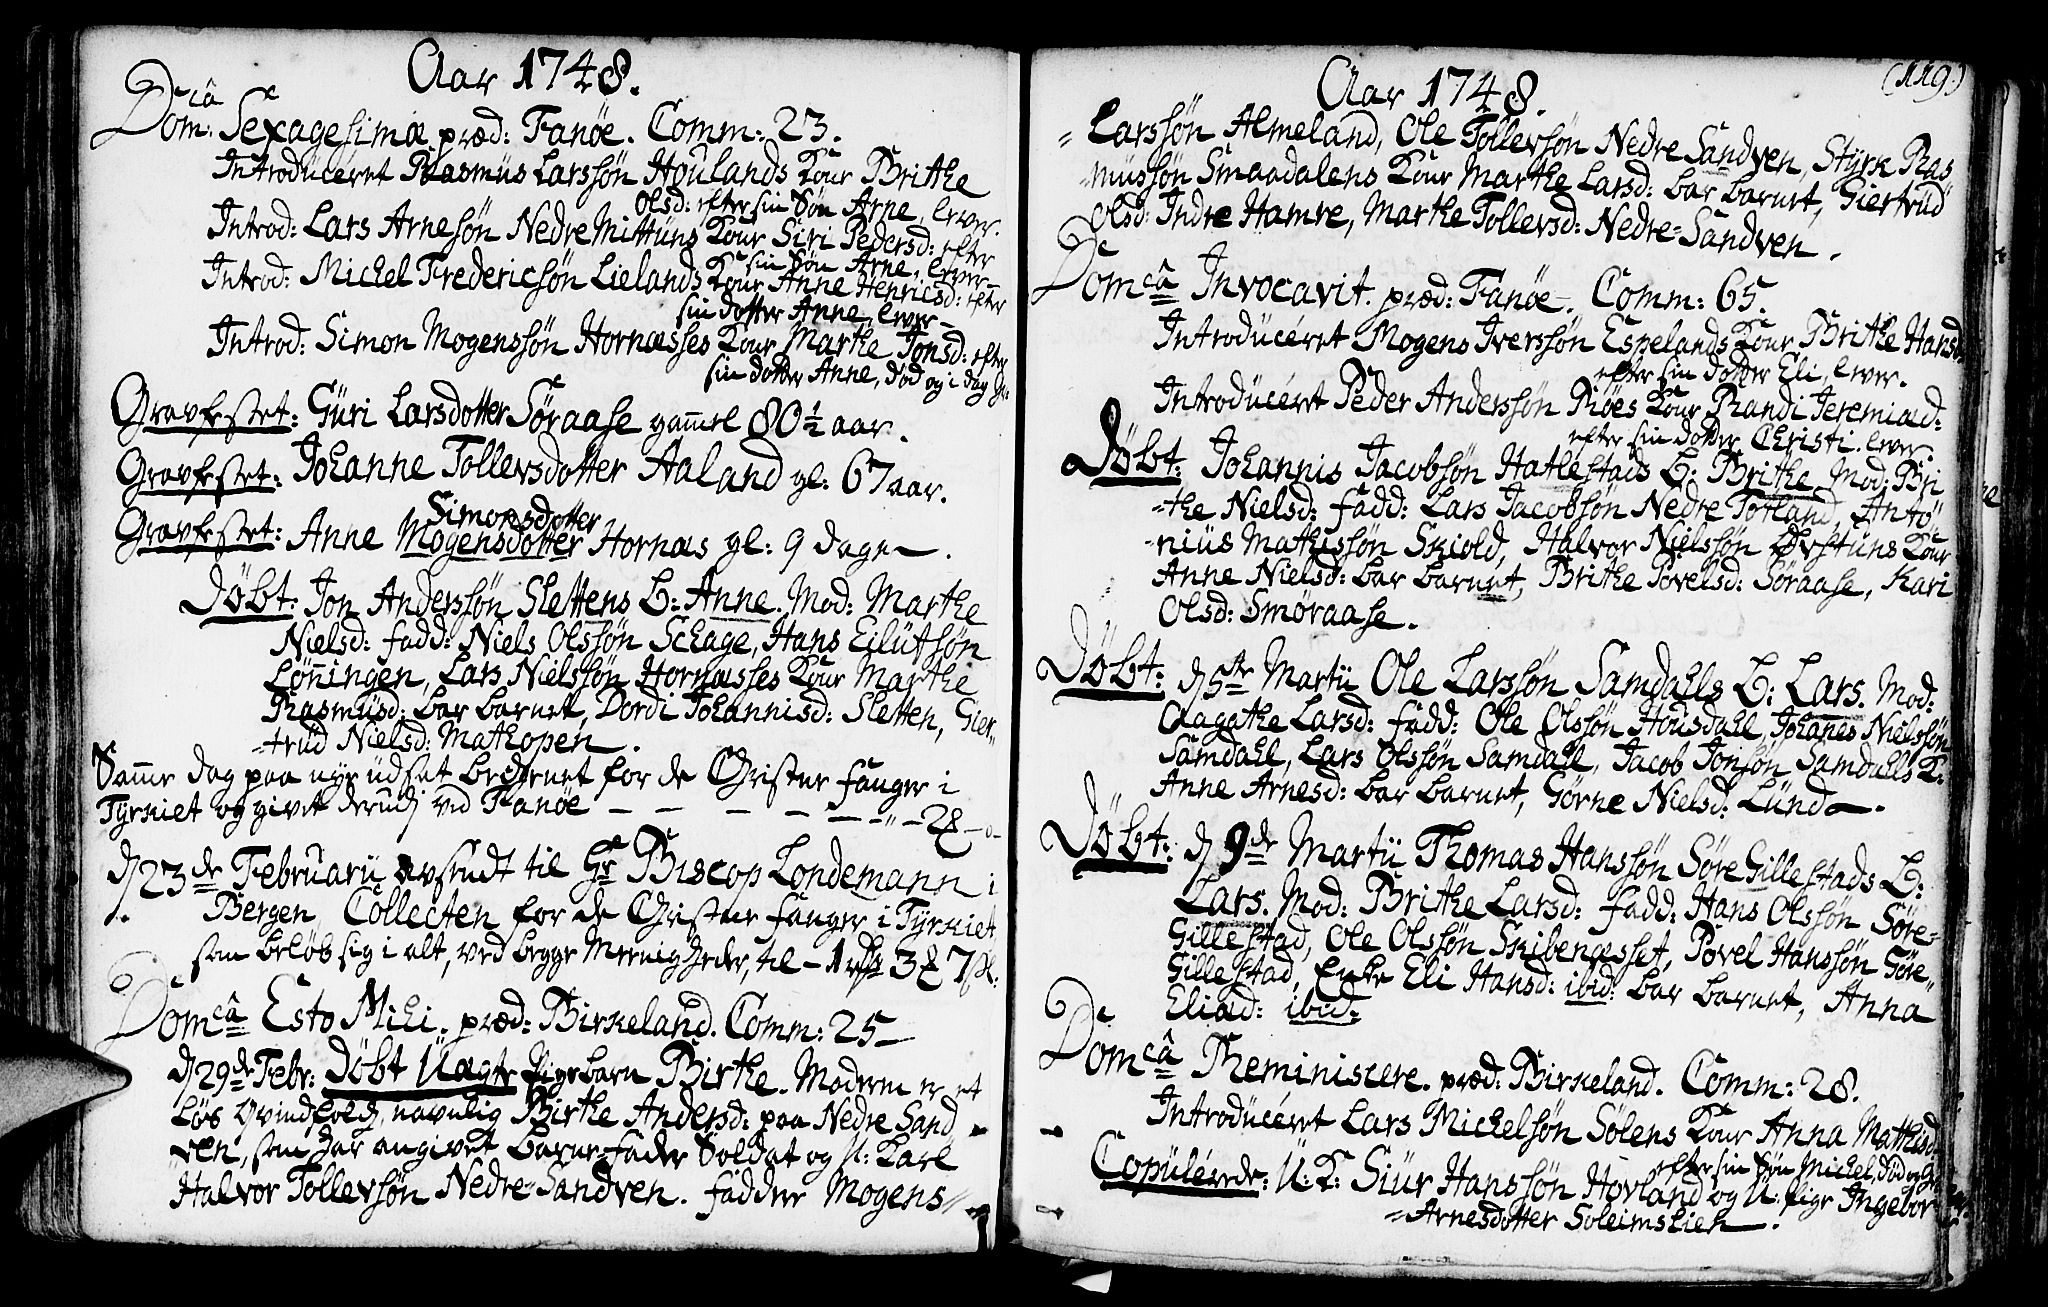 Aar 1748.
Dom:câ Sexagesimæ præd: Fanøe. Comm: 23.
Introduceret Rasmus Larssøn Houlands Kone Brithe
Olsd: efter sin Søn Arne, lever.
Introd: Lars Arnesøn Nedre Mittuns Kone Siri Pedersd: efter
sin Søn Arne, lever.
Introd: Michel Fredericsøn Lielands Kone Anne Henricsd: efter
sin dotter Anne, lever
Introd: Simon Mogenssøn Hornæsses Kone Marthe Jonsd: efter
sin dotter Anne, død og i dag
Gravfestet: Guri Larsdotter Søraase gamel 80 1/2 aar.
Gravfestet: Johanne Tollevsdotter Aaland gl: 67 aar.
Simonsdotter
Gravfestet: Anne Mogensdotter Hornæs gl: 9 dage.
Døbt: Jon Anderssøn Slettens B: Anne. Mod: Marthe
Nielsd: fadd: Niels Olssøn Schage, Hans Eilütsøn
Lønningen, Lars Nielssøn Hornæsses Kone Marthe
Rasmusd: bar barnet, Dordi Johannisd: Sletten, Gier-
-trud Nielsd: Mathopen.
Samme dag paa nye udset bechenet for de Christne fanger i
Tyrkiet og givet derudj ved Fanøe — — — — — — 28 -
d 23de Februarii avsendt til Hr Biscop Londemann i
Bergen Collecten for de Christne fanger i Tyrkiet
som beløb sig i alt, ved begge Meenigheder, til - 1 rdr 3 & 7 s:
Domcâ Esto Mihi. præd: Birkeland. Comm: 25
d 29de Febr: Døbt Uægte Pigebarn Birthe. Moderen er et
løs Qvindfolch, navnlig Birthe Andersd: paa Nedre Sand
ven, som har angivet Barne-fader Soldat og U: Karl
Halvor Tollevsøn Nedre-Sandven. fadder Mogens=
(119.)
Aar 1748.
= Larssøn Almeland, Ole Tollevsøn Nedre Sandven, Styrk Ras
-mussøn Smaadalens Kone Marthe Larsd: bar barnet, Giertrud
Olsd: Indre Hamre, Marthe Tollevsd: Nedre-Sandven.
Domcâ Invocavit. præd: Fanøe. Comm: 65.
Introduceret Mogens Iverssøn Espelands Kone Brithe Hansd:
efter sin dotter Eli, lever.
Introduceret Peder Anderssøn Røes Kone Randi Jeremiæd:
efter sin dotter Christi. lever.
Døbt: Johannis Jacobsøn Hatlestads B: Brithe, Mod: Bri
-the Nielsd: fadd: Lars Jacobsøn Nedre Totland, Anto-
-nius Mathissøn Skiold, Halvor Nielssøn Øvstuns Kone
Anne Nielsd: bar barnet, Brithe Povelsd: Søraase, Kari
Olsd: Smøraase.
Døbt: d 5te Martii Ole Larssøn Samdahls B: Lars. Mod:
Aagathe Larsd: fadd: Ole Olssøn Housdahl, Johanes Nielssøn
Samdahl, Lars Olssøn Samdahl, Jacob Jonsøn Samdahls K:
Anne Arnesd: bar barnet, Gørne Nielsd: Lund.
Døbt: d 9de Martii Thomas Hanssøn Søre Gillestads B:
Lars. Mod: Brithe Larsd: fadd: Hans Olssøn Søre-
Gillestad, Ole Olssøn Skibenæsset, Povel Hanssøn Søre-
Gillestad, Enke Eli Hansd: ibid: bar barnet, Anna
Eliæd: ibid:
Domcâ Reminiscere. præd: Birkeland. Comm: 28.
Introduceret Lars Michelsøn Sølens Kone Anna Mathisd:
efter sin Søn Michel, død
Copulerede: U: K: Siur Hanssøn Hovland og U: Pige Ingebor
=Arnesdotter Soleimslien.